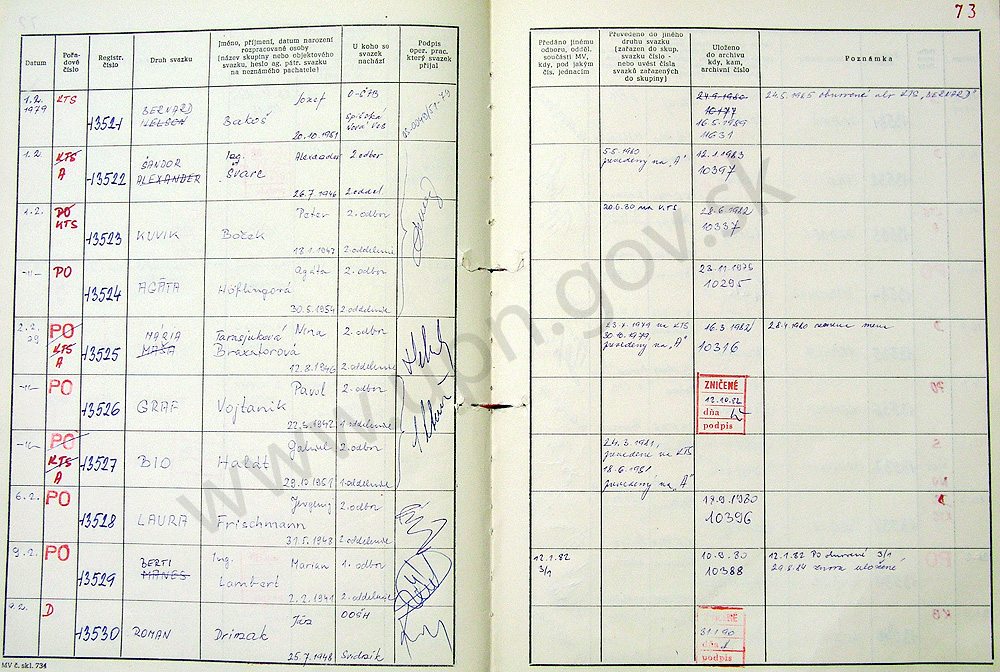 73
Datum
Pořa-
dové
číslo
Registr.
číslo
Druh svazku
Jméno, příjmení, datum narození
rozpracované osoby
(název skupiny nebo objektového
svazku, heslo ag. pátr. svazku
na neznámého pachatele)
U koho se
svazek
nachází
Podpis
oper. prac.
který svazek
přijal
Předáno jinému
odboru, odděl.
součásti MV,
kdy, pod jakým
čís. jednacím
Převedeno do jiného
druhu svazku
(zařazen do skup.
svazku číslo -
nebo uvést čísla
svazků zařazených
do skupiny)
Uloženo
do archivu
kdy, kam,
archivní číslo
Poznámka
1.2.
1979
KTS
13521
BERNARD
NELSON
Jozef
Bakoš
20.10.1951
24.9.1980
16177
16.5.1989
11631
1.2.
KTS
A
13522
ŠANDOR
ALEXANDER
Ing.
Alexander
Švarc
26.7.1946
2.odbor
2.oddel
5.5.1980
prevedený na "A"
12.1.1983
10397
1.2.
PO
KTS
13523
KUVIK
Peter
Božek
18.1.1947
2.odbor
2.oddelenie
20.6.80 na KTS
28.6.1982
10337
-"-
PO
13524
AGÁTA
Agáta
Höflingová
30.5.1954
2.odbor
2.oddelenie
23.11.1979
10295
2.2.
79
PO
KTS
A
13525
MÁRIA
MAŠA
Tarasjuková
Nina
Braxatorová
12.8.1946
2.odbor
2.oddelenie
23.X.1979 na KTS
30.10.1979
prevedený na "A"
16.3.1982
10316
28.4.1980 zmena mena
-"-
PO
13526
GRAF
Pavol
Vojtaník
22.3.1942
2.odbor
1.oddelenie
ZNIČENÉ
12.10.82
dňa
podpis
-"-
PO
KTS
A
13527
BIO
Gabriel
Haldt
29.10.1951
2.odbor
1.oddelenie
24.3.1981,
prevedené na KTS
18.6.1981
prevedený na "A"
6.2.
PO
13528
LAURA
Frischmann
31.5.1948
2.odbor
2.oddelenie
17.9.1980
10396
9.2.
PO
13529
BERTI
MANES
Ing.
Marian
Lambert
2.2.1941
1.odbor
2.oddelenie
12.1.82
3/1
10.9.80
10388
12.1.82 PO
3/1
znova uložené
9.2.
D
13530
ROMAN
Ján
Drinzak
25.7.1948
OOŠH
Svidník
31.1.90
dňa
podpis
MV č. skl. 734
www.upn.gov.sk